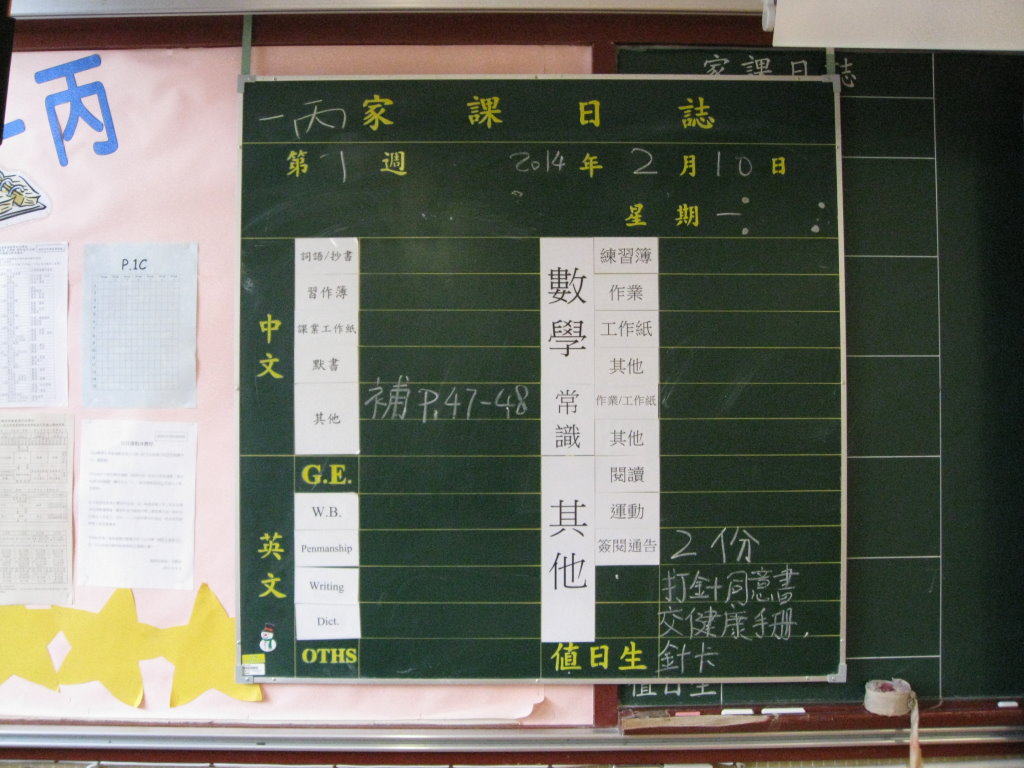 一丙
家課日誌
一丙 家課日誌
第 1 週 2014 年 2 月 10 日
星期一
P.1C
中文
詞語/抄書
習作簿
課業工作紙
默書
其他 補 P.47-48
英文
G.E.
W.B.
Penmanship
Writing
Dict.
OTHS
數學
練習簿
作業
工作紙
其他
常識
作業/工作紙
其他
其他
閱讀
運動
簽閱通告 2份
打針同意書
交健康手冊,
針卡
值日生
值日生